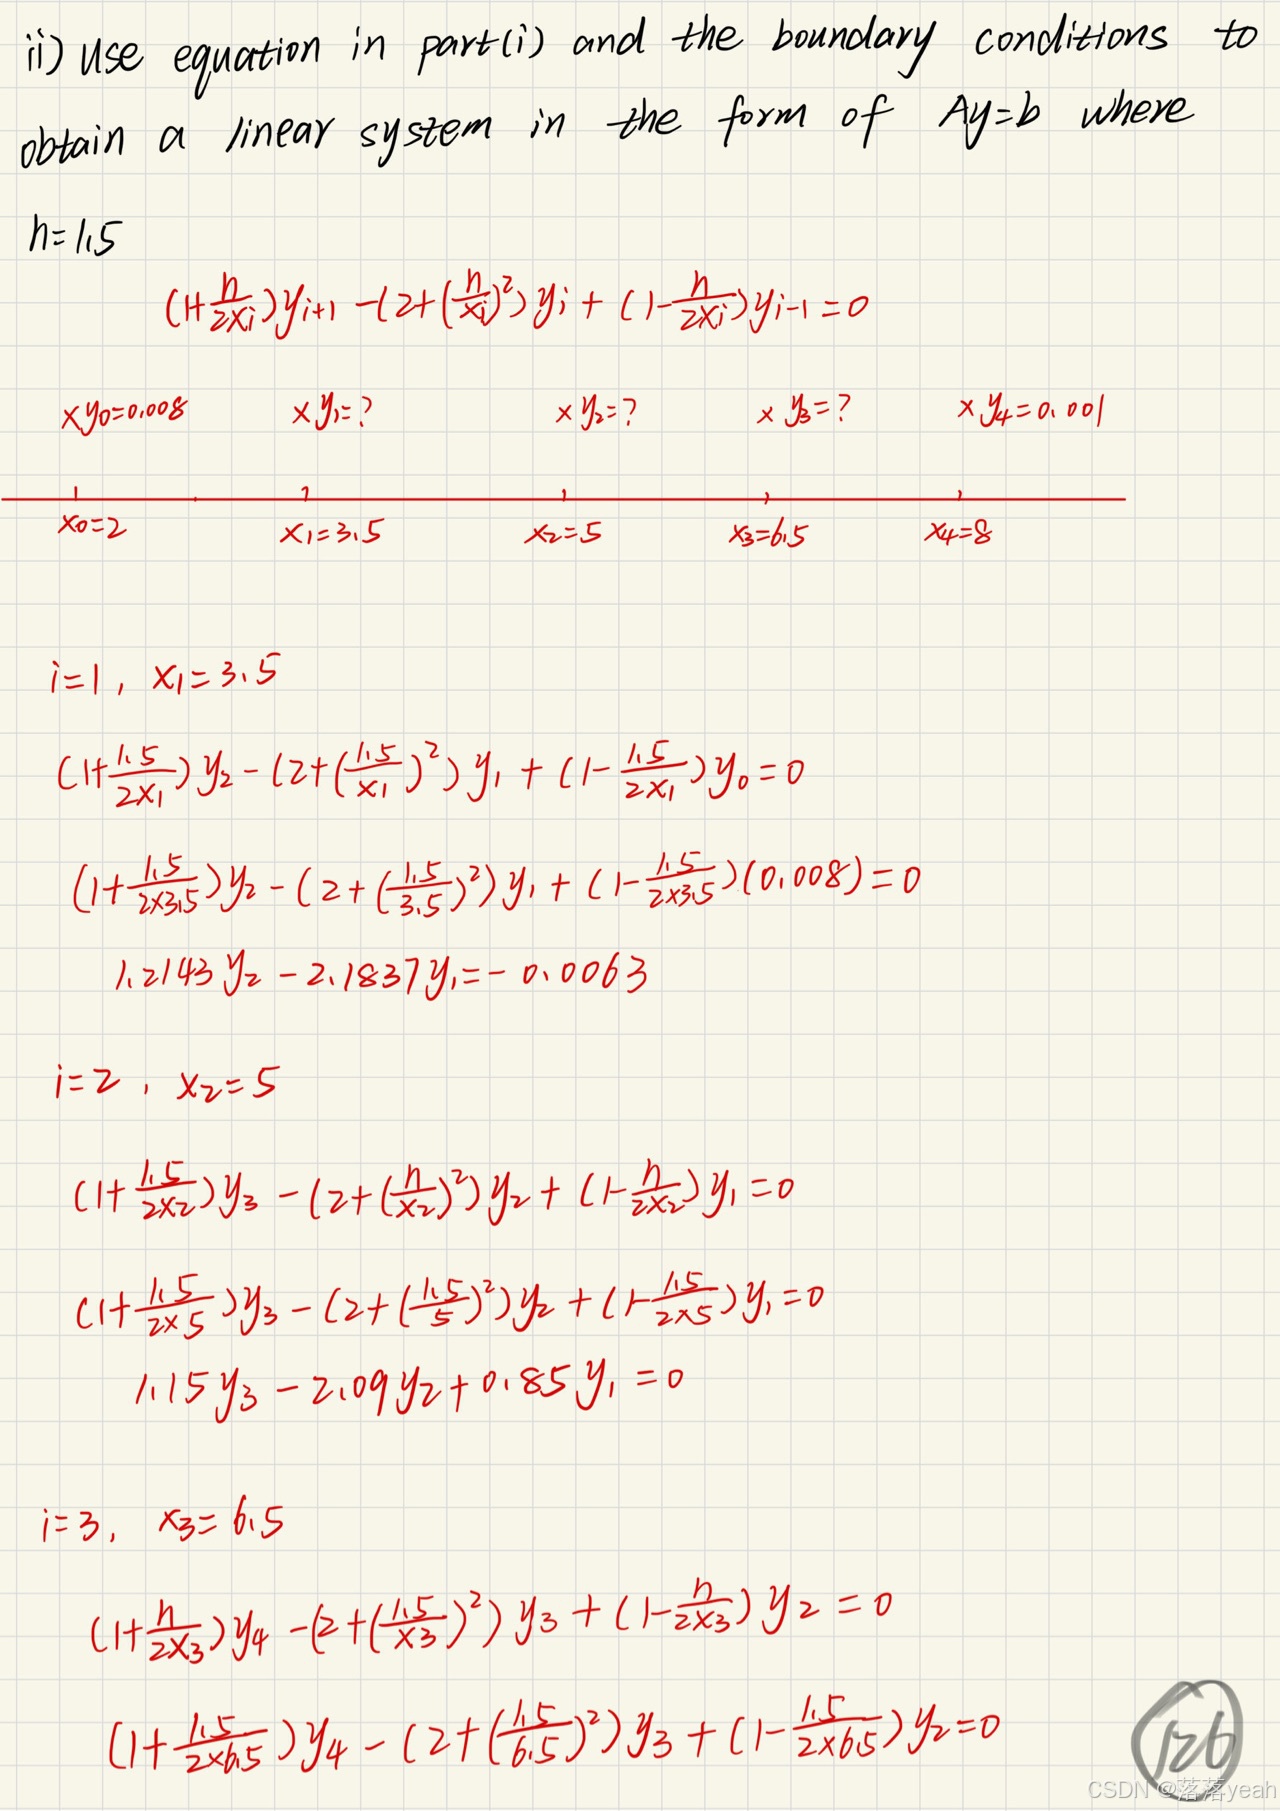 ii) Use equation in part(i) and the boundary conditions to
obtain a linear system in the form of Ay=b where
h=1.5
(1+h/2xi)yi+1 -(2+(h/xi)²)yi + (1-h/2xi)yi-1=0
xy0=0.008 xy1=? xy2=? xy3=? xy4=0.001
x0=2 x1=3.5 x2=5 x3=6.5 x4=8
i=1, x1=3.5
(1+1.5/2x1)y2-(2+(1.5/x1)²)y1+(1-1.5/2x1)y0=0
(1+1.5/2×3.5)y2-(2+(1.5/3.5)²)y1+(1-1.5/2×3.5)(0.008)=0
1.2143y2-2.1837y1=-0.0063
i=2, x2=5
(1+1.5/2x2)y3-(2+(h/x2)²)y2+(1-h/2x2)y1=0
(1+1.5/2×5)y3-(2+(1.5/5)²)y2+(1-1.5/2×5)y1=0
1.15y3-2.09y2+0.85y1=0
i=3, x3=6.5
(1+h/2x3)y4-(2+(1.5/x3)²)y3+(1-h/2x3)y2=0
(1+1.5/2×6.5)y4-(2+(1.5/6.5)²)y3+(1-1.5/2×6.5)y2=0
126
CSDN @落落yeah